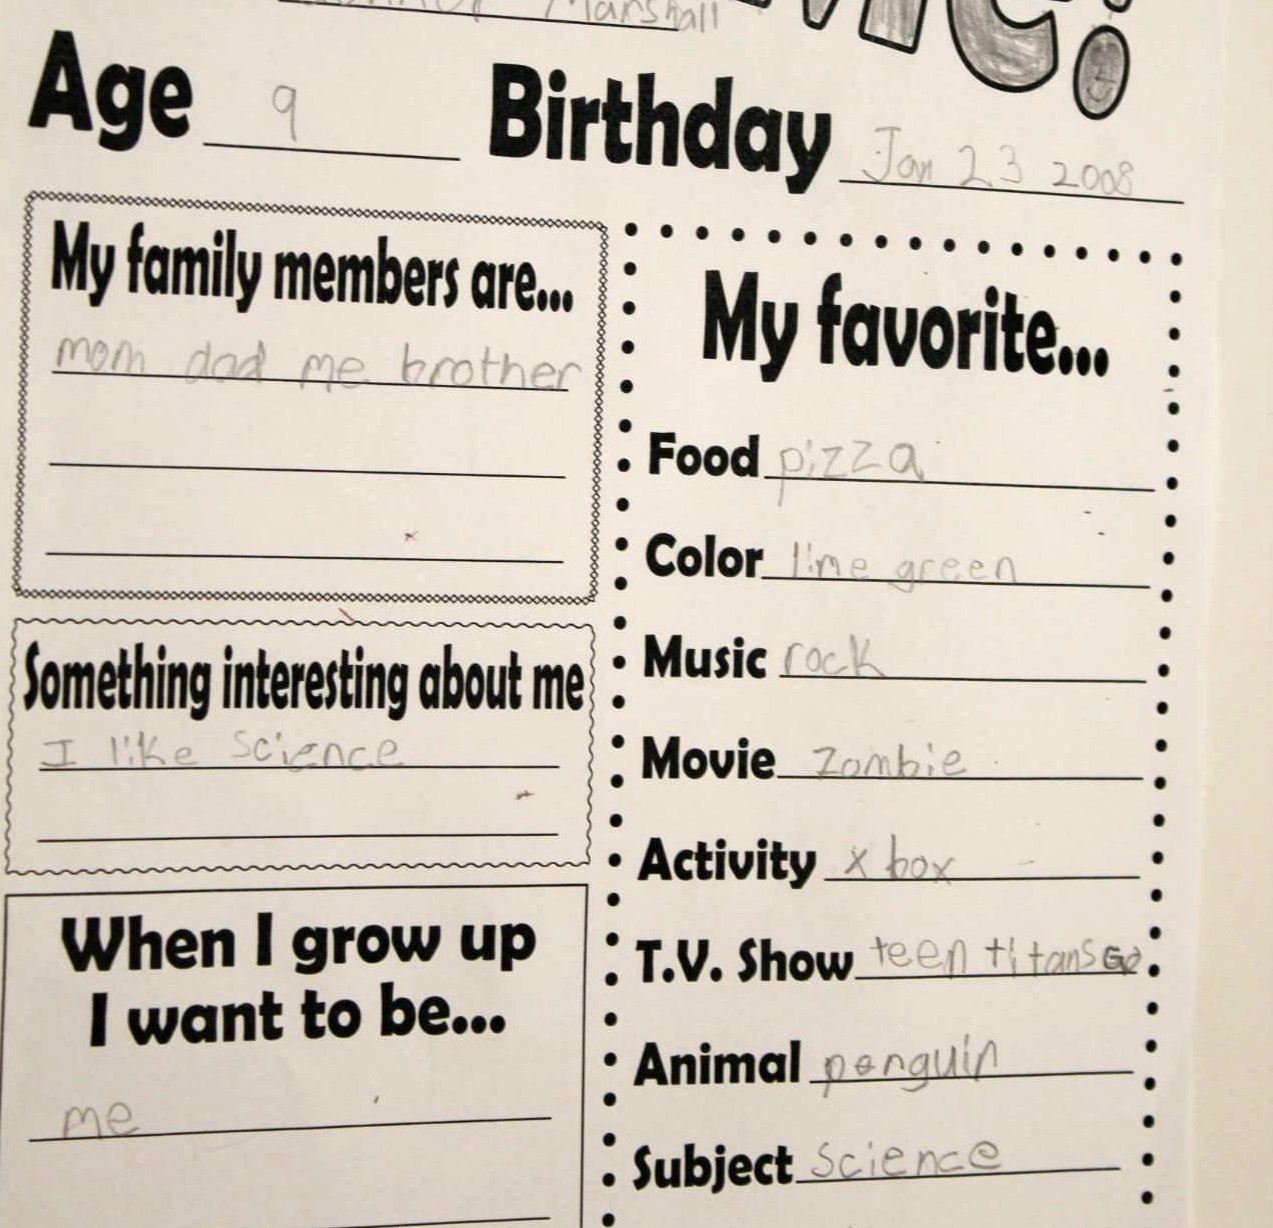 Marshall
Age 9 Birthday Jan 23 2008
My family members are...
mom dad me brother
Something interesting about me
I like science
When I grow up
I want to be...
me
My favorite...
Food pizza
Color lime green
Music rock
Movie zombie
Activity x box
T.V. Show teen titans Go
Animal penguin
Subject science